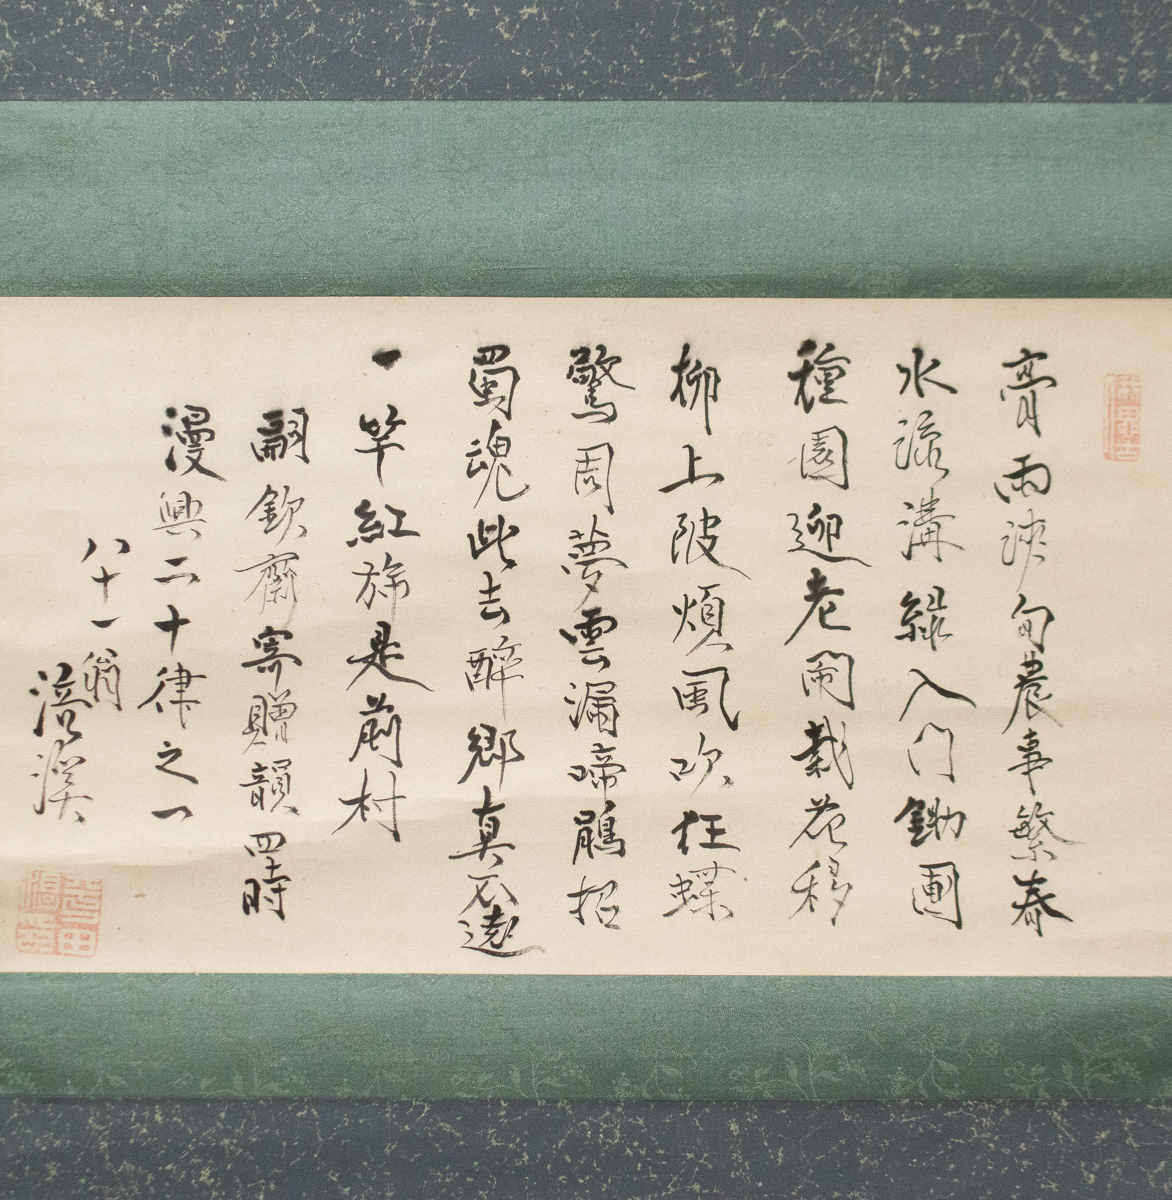 膏雨浹旬農事繁春
水添溝緑入門鋤圃
種園迎老鬧栽花移
柳上陂煩風吹狂蝶
驚周夢雲漏啼鵑招
蜀魂此去醉郷真不遠
一竿紅旆是前村
嗣欽齋寄贈韻四時
漫興二十律之一
八十一翁
涪